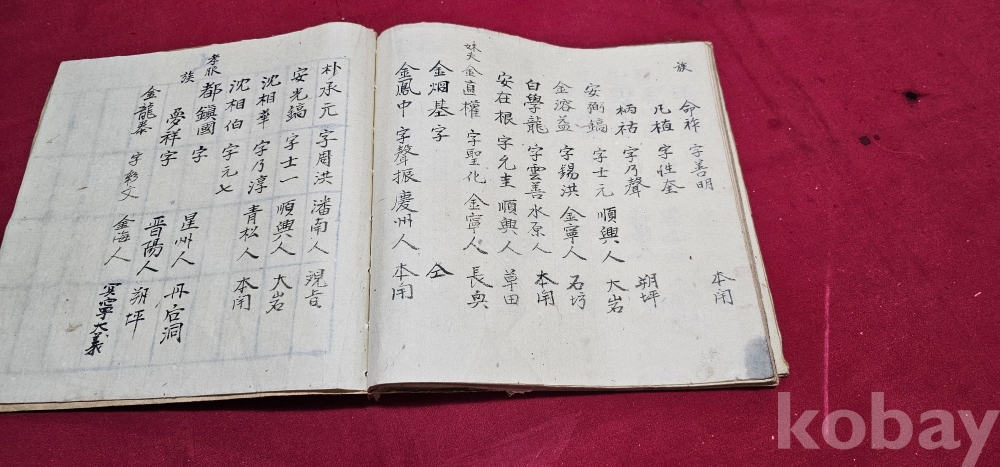 族
命祚 字善明 本闲
凡植 字性奎
柄祜 字乃聲 朔坪
安衡鎬 字士元 順興人 大岩
金溶益 字錫洪 金寧人 石坊
白學龍 字雲善 水原人 本闲
安在根 字允圭 順興人 草田
妹夫 金直權 字聖化 金寧人 長奧
金烟基 字 仝
金鳳中 字聲振 慶州人 本闲
朴承元 字周洪 潘南人
安光鎬 字士一 順興人 大岩
沈相華 字乃淳
沈相伯 字元七 青松人 本闲
都鎮國 字 星州人 丹石洞
族 夢祥 字 晋陽人 朔坪
金龍泰 字 文 金海人 大義
kobay